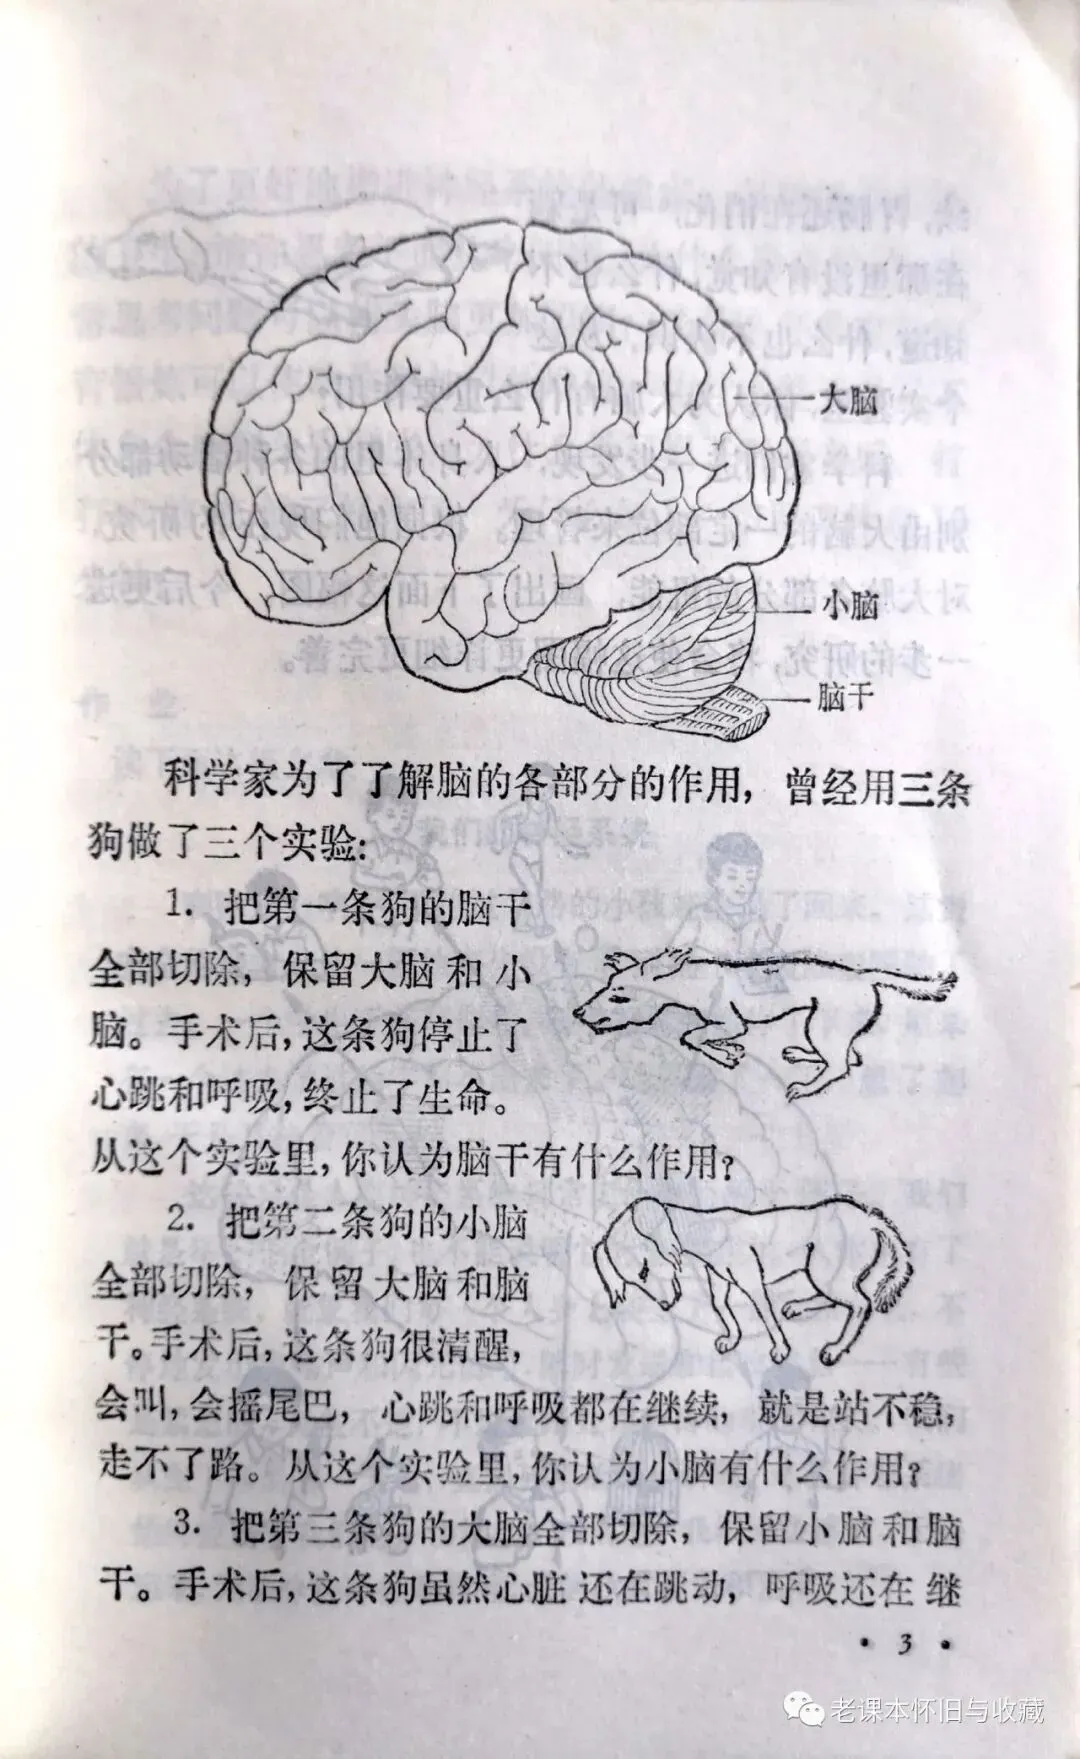 大脑
小脑
脑干
科学家为了了解脑的各部分的作用，曾经用三条
狗做了三个实验：
1. 把第一条狗的脑干
全部切除，保留大脑和小
脑。手术后，这条狗停止了
心跳和呼吸，终止了生命。
从这个实验里，你认为脑干有什么作用？
2. 把第二条狗的小脑
全部切除，保留大脑和脑
干。手术后，这条狗很清醒，
会叫，会摇尾巴，心跳和呼吸都在继续，就是站不稳，
走不了路。从这个实验里，你认为小脑有什么作用？
3. 把第三条狗的大脑全部切除，保留小脑和脑
干。手术后，这条狗虽然心脏还在跳动，呼吸还在继
• 3 •
老课本怀旧与收藏